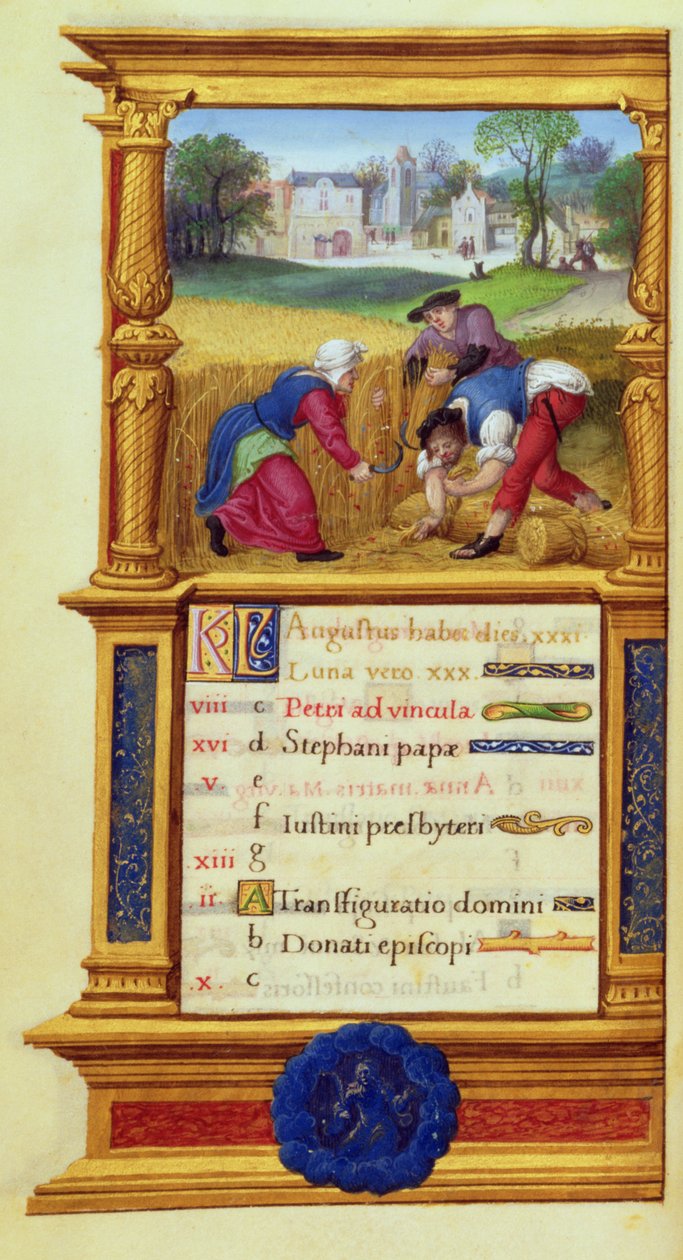 KL Augustus habet dies .xxxi.
Luna vero xxx.
viii c Petri ad vincula
xvi d Stephani papæ
.v. e
f Iustini presbyteri
.xiii g
.ii. A Transfiguratio domini
b Donati episcopi
.x. c